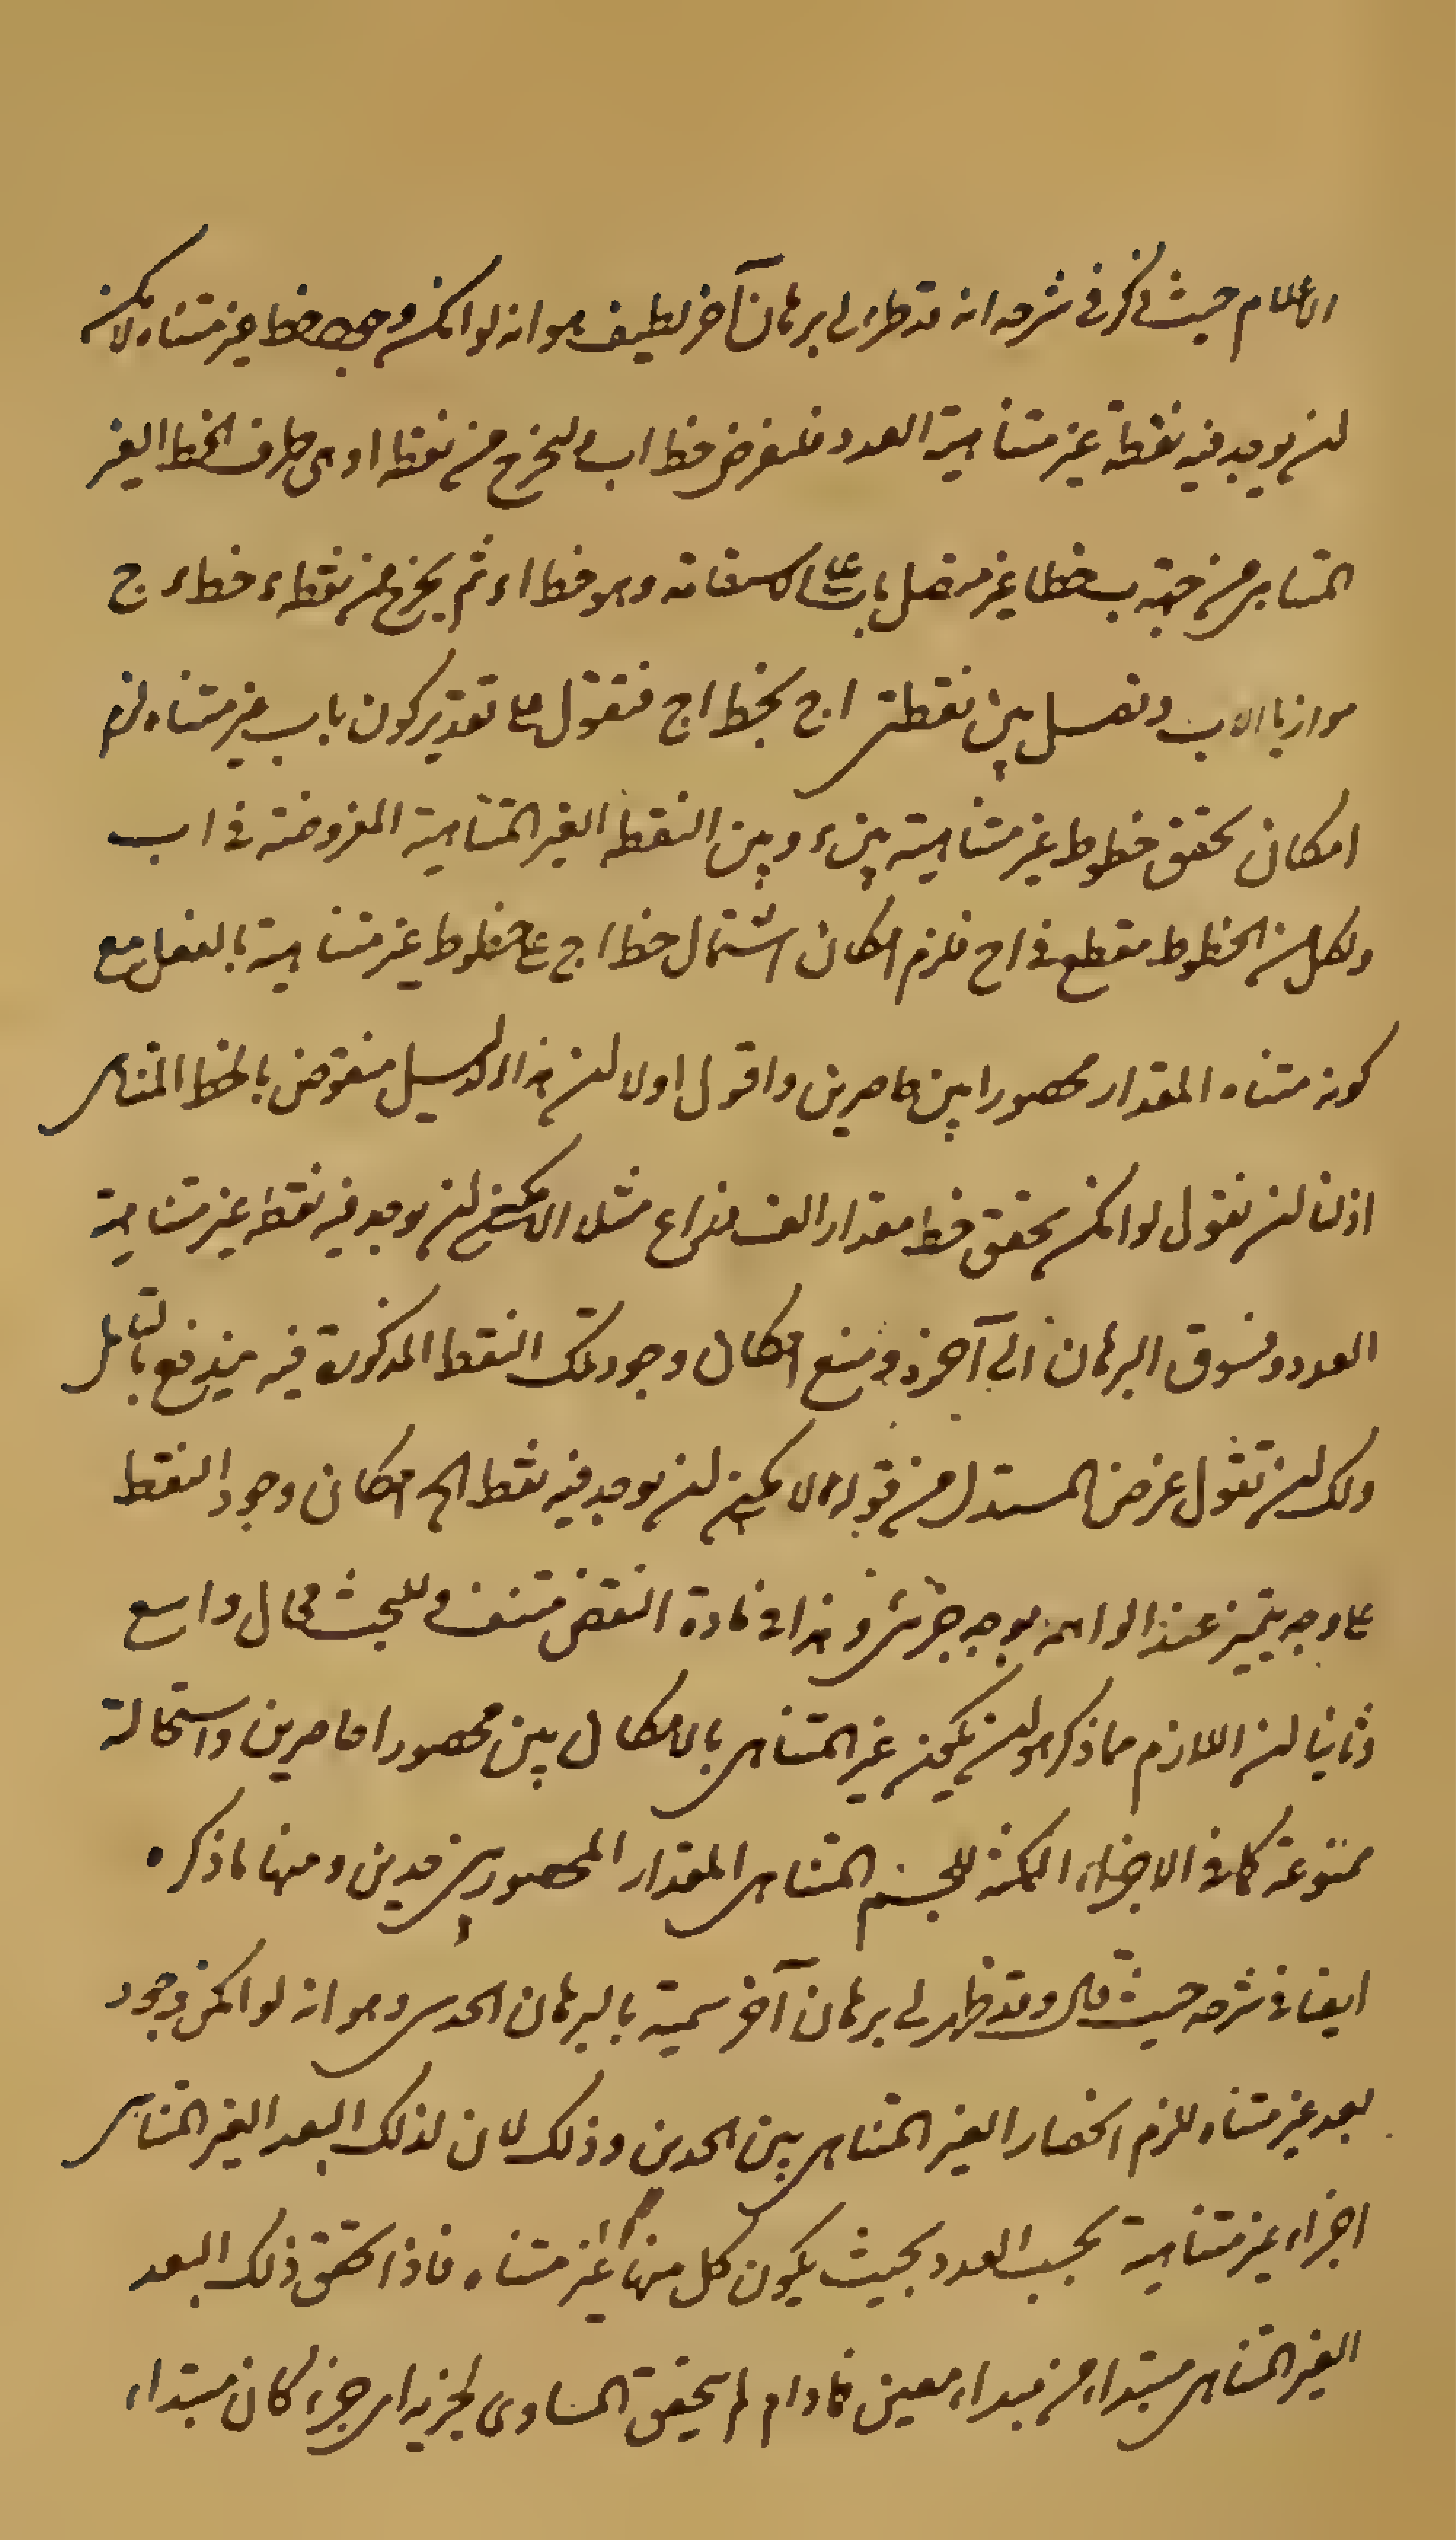 الاعلام حيث ذكر فى شرحه انه قد ظهر لى برهان آخر لطيف هو انه لو امكن وجود خط غير متناه لامكن
ان يوجد فيه نقطة غير متناهية العدد فلنفرض خط اب و لنخرج من نقطه ا و هى طرف الخط الغير
المتناهى من جهة ب خطا غير متصل باب على استقامته و هو خط اء ثم يخرج من نقطة ء خط ء ج
موازيا لاب و نصل بين نقطتى ا ج بخط اج فنقول على تقدير كون اب غير متناه لزم
امكان تحقق خطوط غير متناهية بين ء و بين النقطه الغير المتناهية المفروضة فى ا ب
ولكل من الخطوط مقطع فى اج فلزم امكان اشتمال خط اج على خطوط غير متناهية بالفعل مع
كونه متناه المقدار محصورا بين حاصرين و اقول اولا ان هذا الدليل منقوض بالخط المتناهى
اذ لنا ان نقول لو امكن تحقق خط مقدار الف ذراع مثلا لامكن ان يوجد فيه نقطه غير متناهية
العدد و نسوق البرهان الى آخره و منع امكان وجود تلك النقط المذكورة فيه يندفع بالتأمل
ولك ان تقول غرض المستدل من قوله لامكن ان يوجد فيه نقط الخ امكان وجود النقط
على وجه يتميز عند الواهمة بوجه جزئى و هذا فى مادة النقض منتف و للبحث مجال واسع
و ثانيا ان اللازم مما ذكر هو ان يكون غير المتناهى بالامكان بين محصورا حاصرين و استحالة
ممنوعة كما فى الاجزاء الممكنة للجسم المتناهى المقدار المحصور بين حدين و منها ما ذكره
ايضا فى شرحه حيث قال و قد ظهر لى برهان آخر سميته بالبرهان الحدسى و هو انه لو امكن وجود
بعد غير متناه للزم انحصار الغير المتناهى بين الحدين و ذلك لان لذلك البعد الغير المتناهى
اجزاء غير متناهية بحسب العدد بحيث يكون كل منها غير متناه فاذا تحقق ذلك البعد
الغير المتناهى مبتداء من مبداء معين فما دام لم يتحقق المساوى لجزء اى جزء كان مبتداء